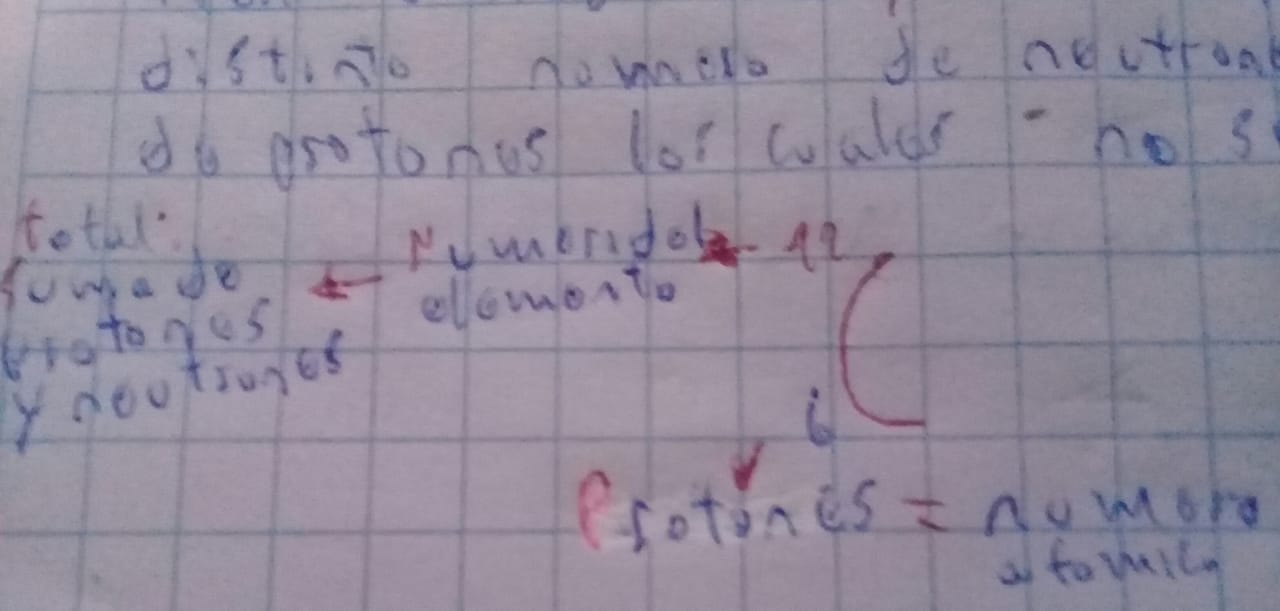 distinto numero de neutrone
de protones los cuales - no s
total:
suma de
protones
y neutrones
← Numero del ← 12 C
elemento
6
Protones = numero
atomico